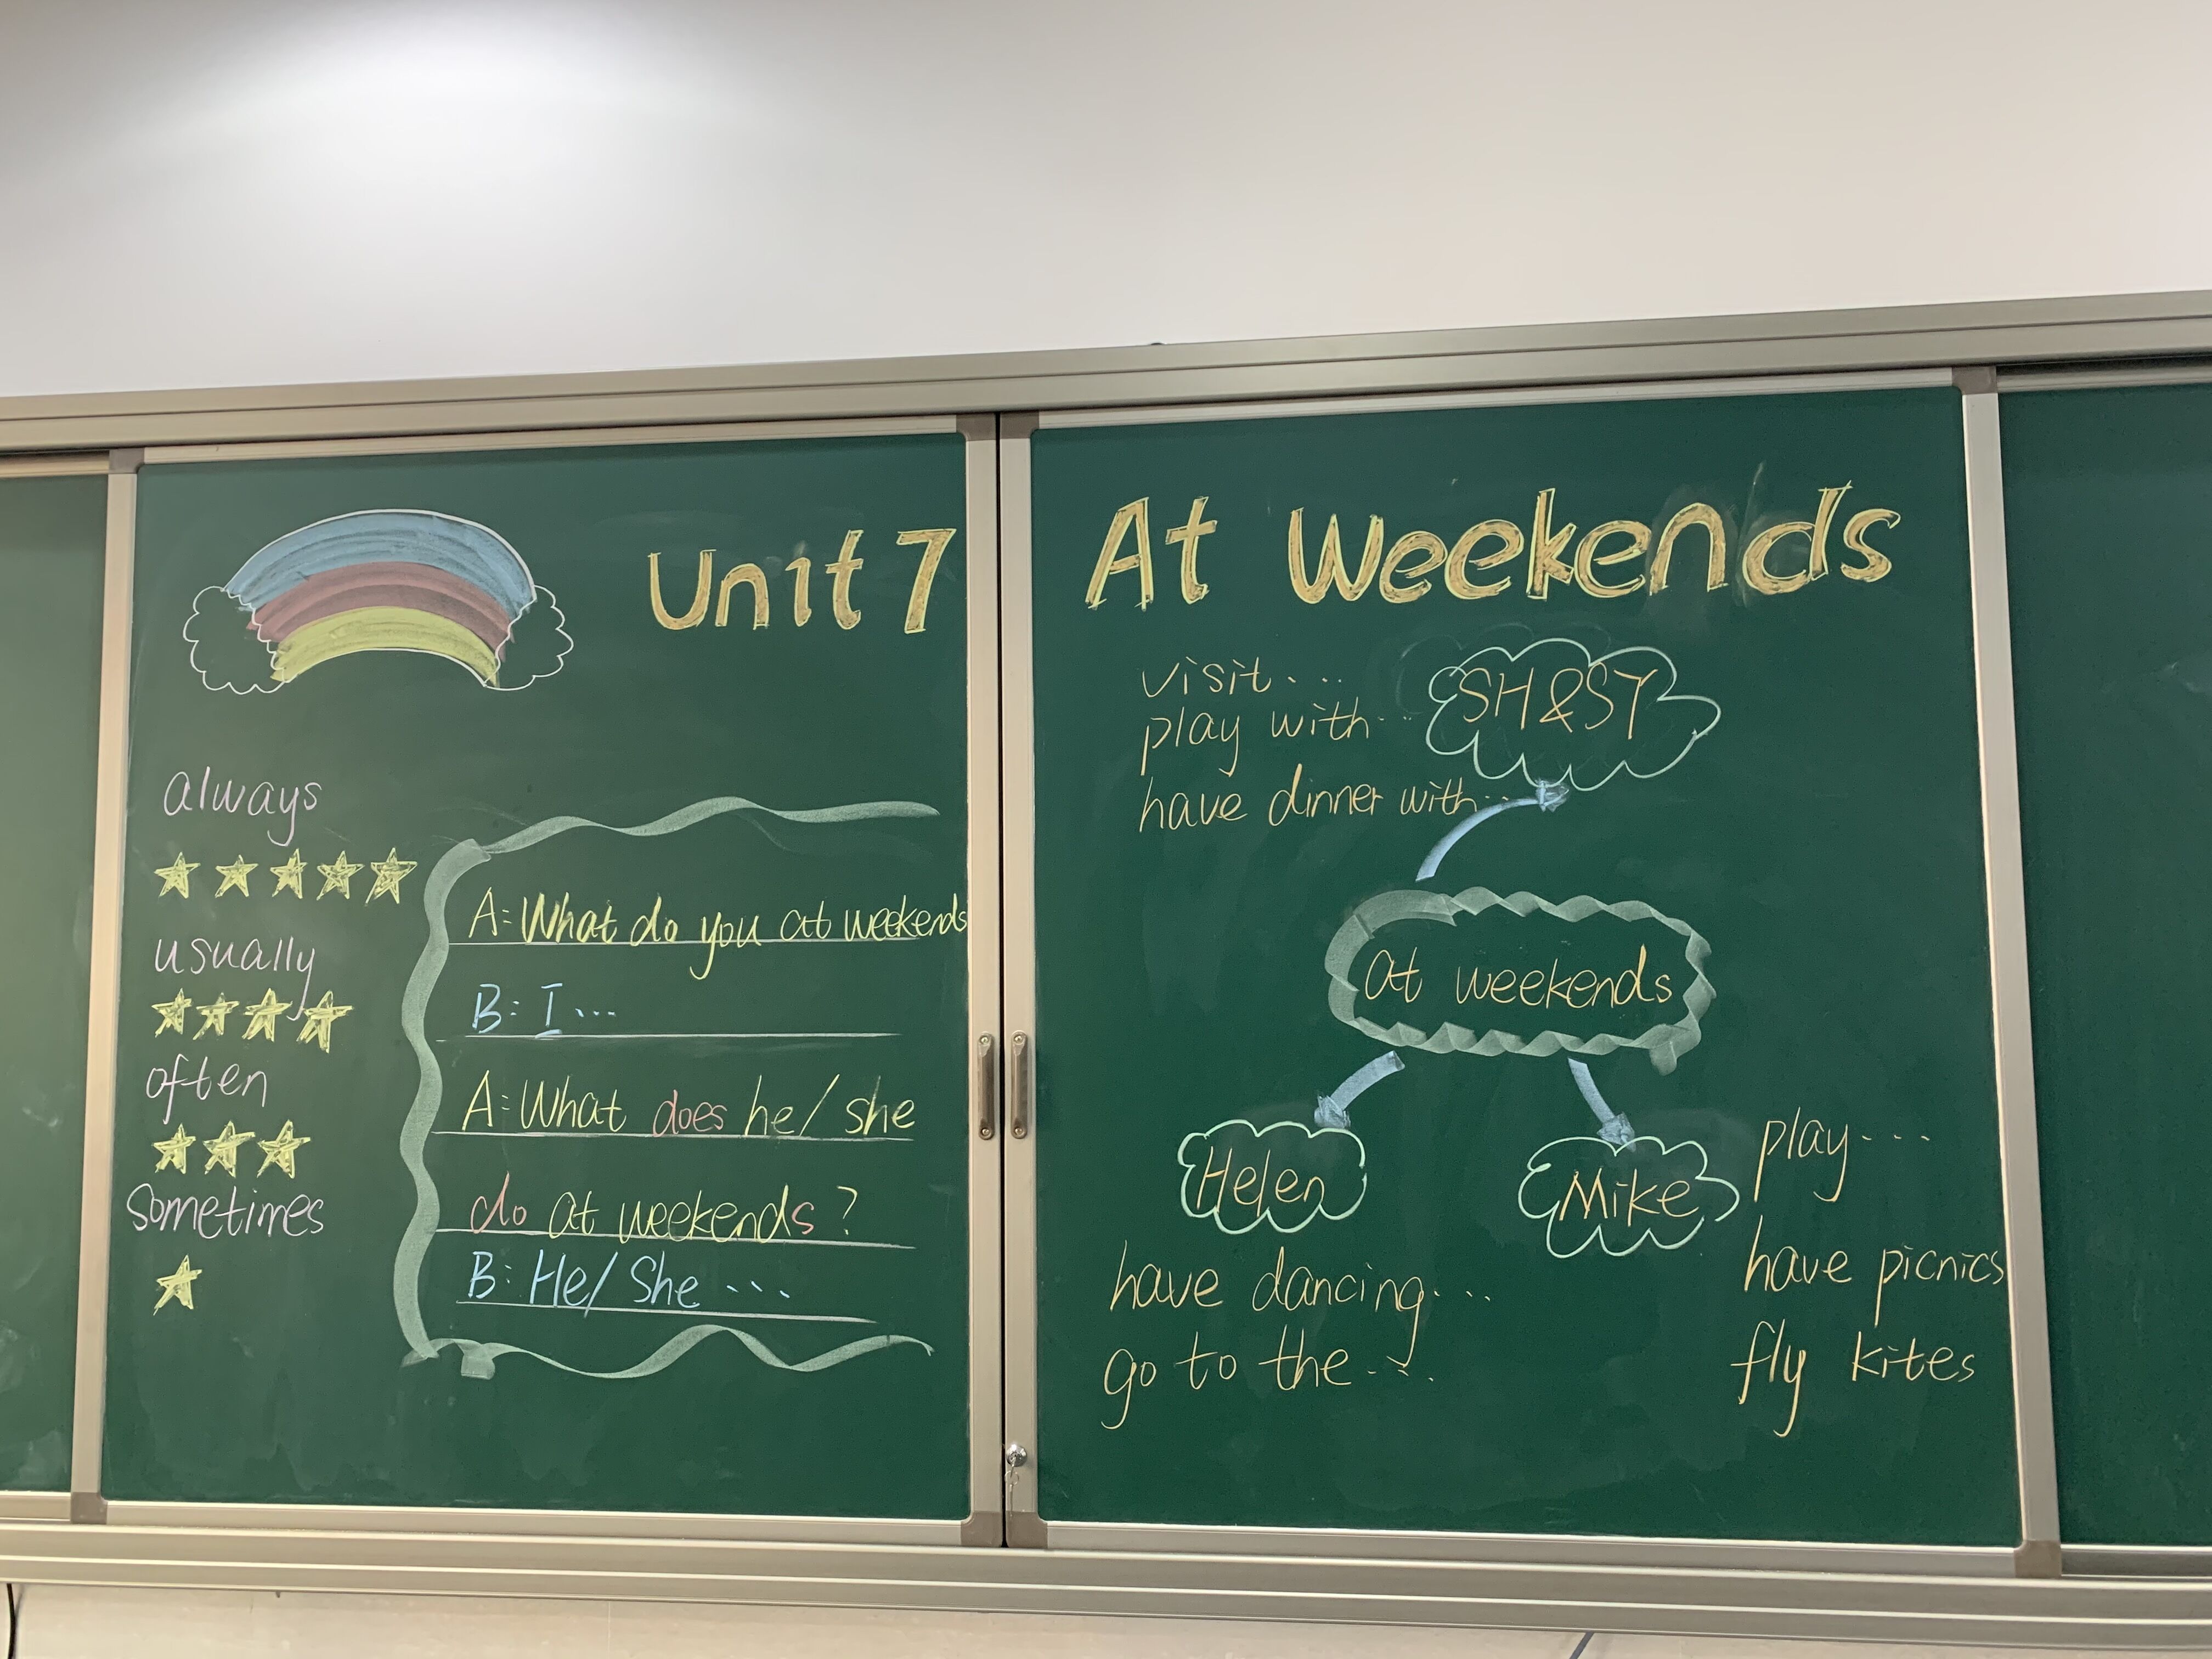 Unit 7 At Weekends
always
usually
often
sometimes
A: What do you at weekends
B: I...
A: What does he/ she
do at weekends?
B: He/ She ...
visit....
play with...
have dinner with...
SH&ST
at weekends
Helen
have dancing....
go to the....
Mike
play....
have picnics
fly kites